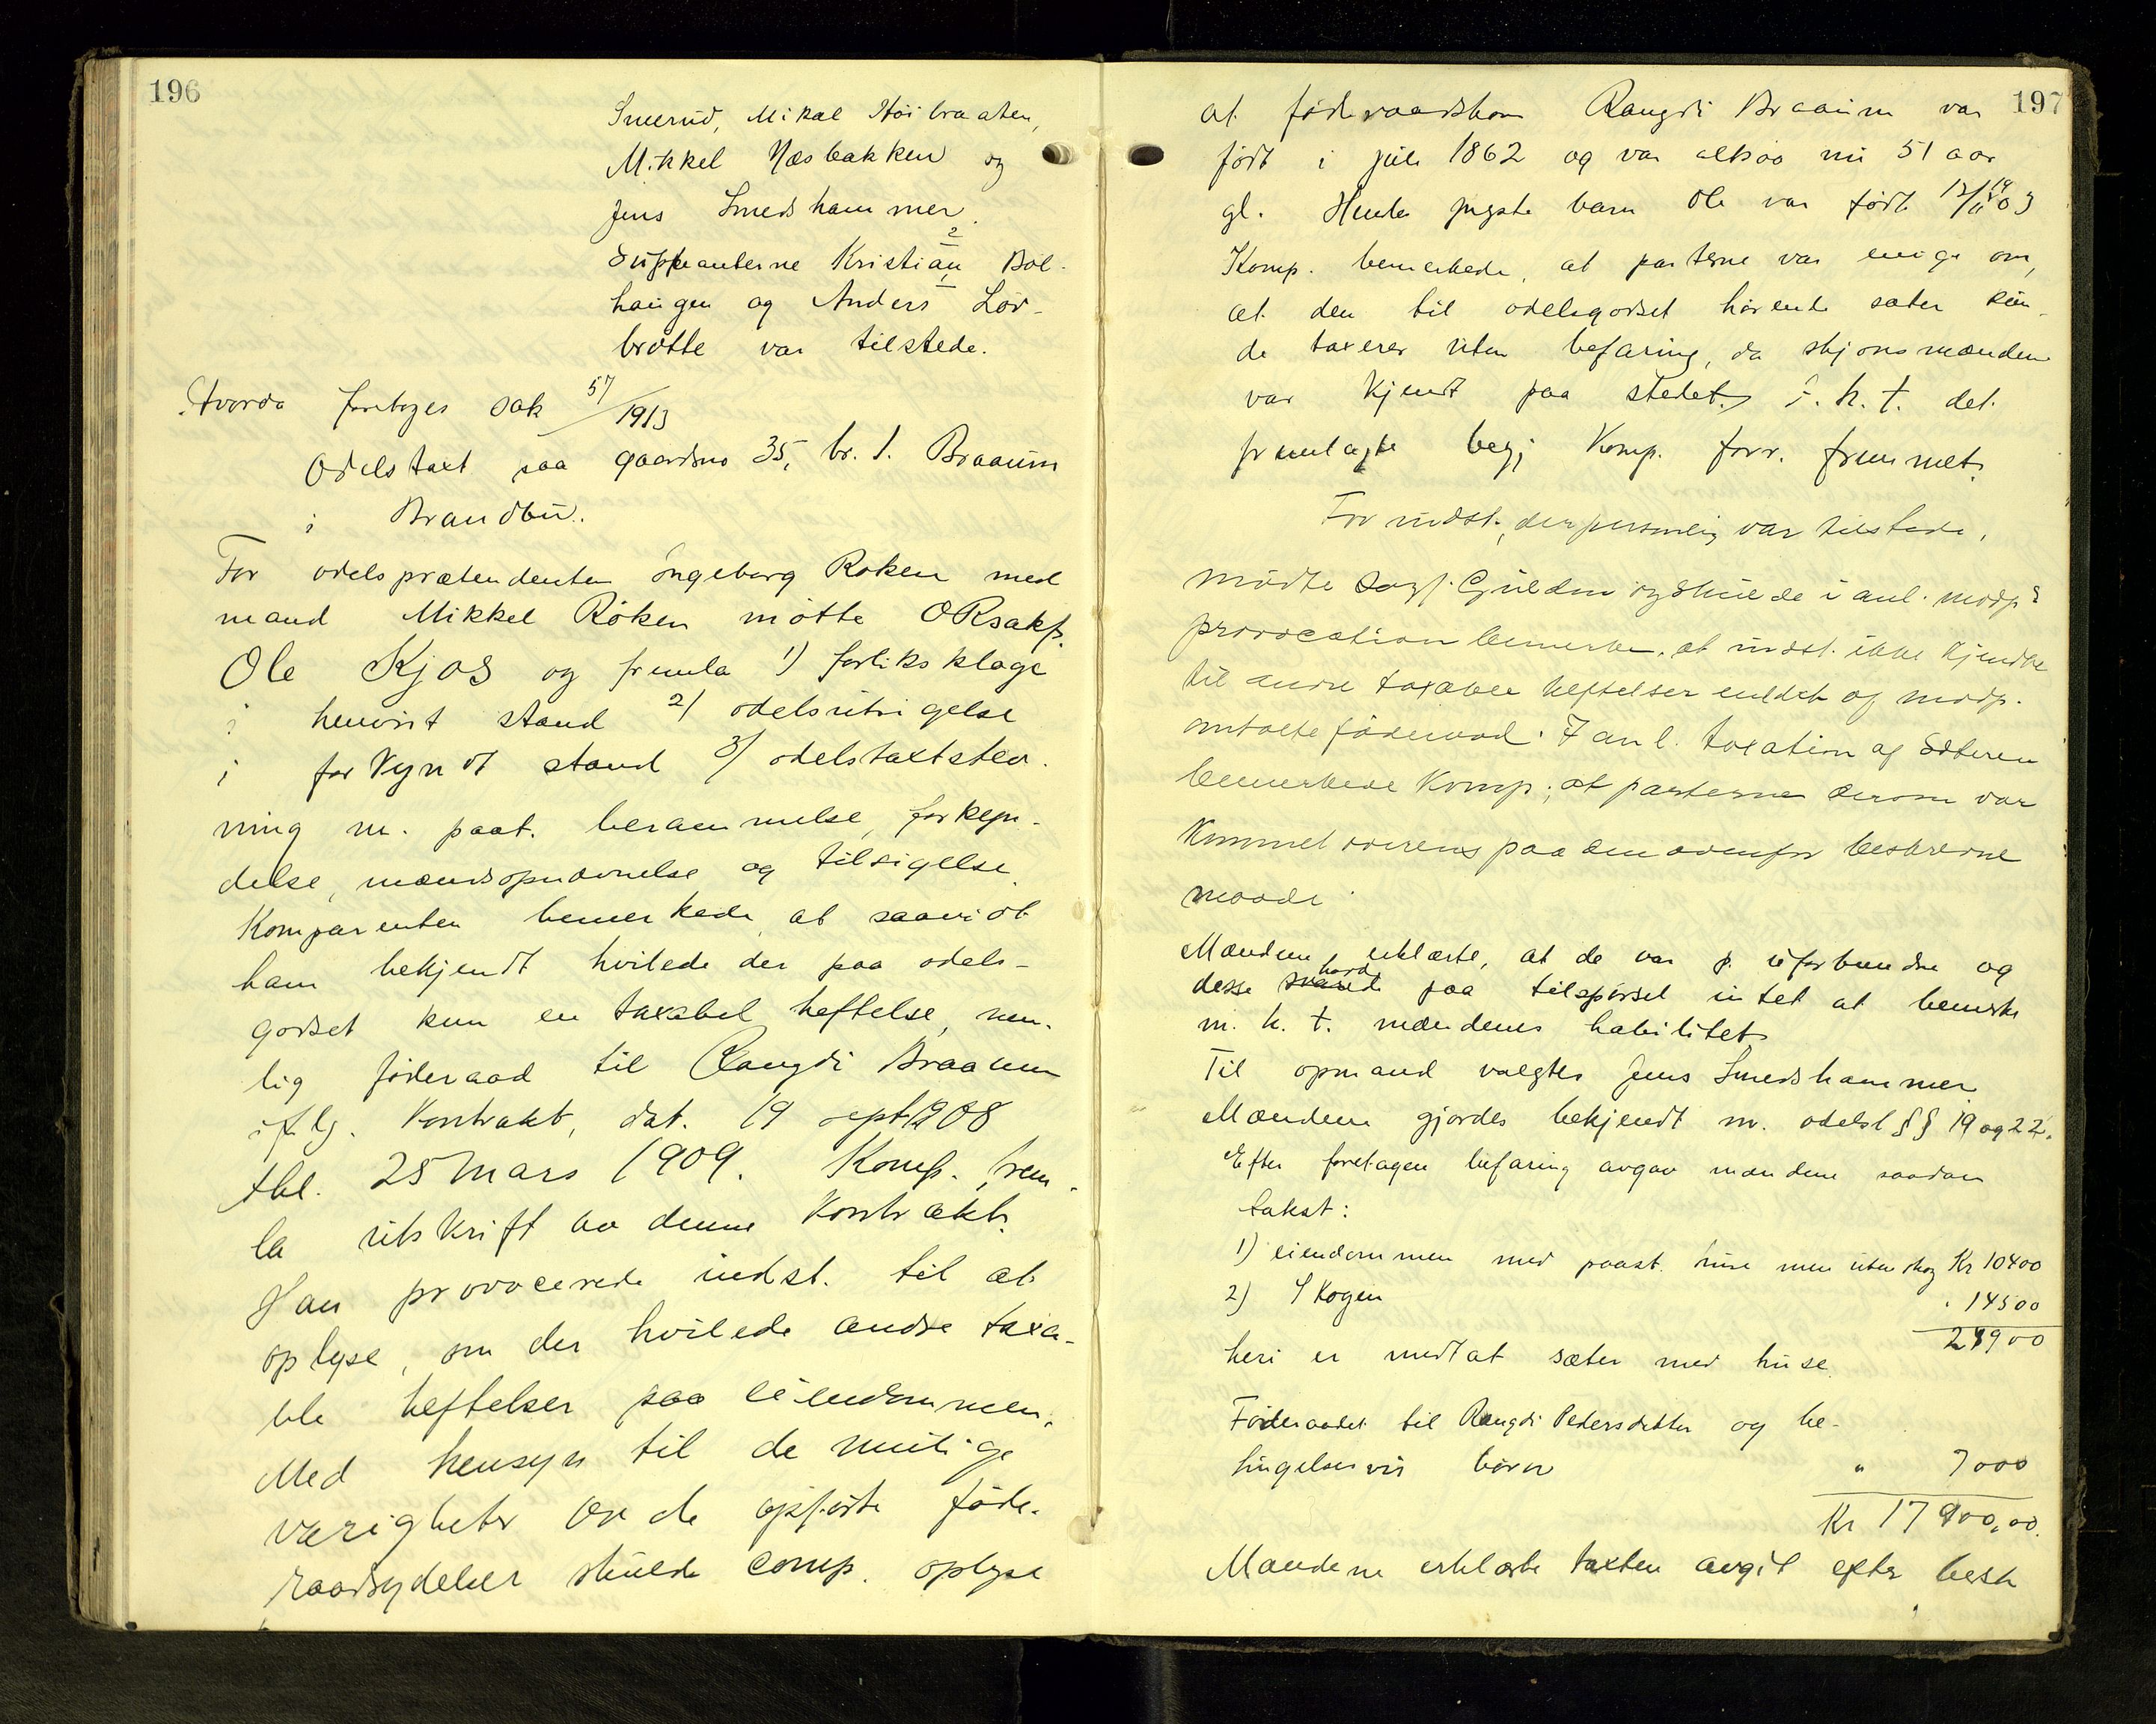 196
Smerud, Mikal Höibraaten,
Mikkel Næsbakken og
Jens Smedshammer.
2
Suppleanterne Kristian Böl-
haugen og Anders Löv-
brötte var tilstede.
Hvorda foretoges sak 57/1913
Odelstaxt paa gaardsno 35, br. 1. Braaum
i Brandbu.
For odelsprætendenten Ingeborg Röken med
mand Mikkel Röken mötte ORsakf.
Ole Kjos og fremla 1) forliksklage
i henvist stand 2) odelsutsigelse
i forkyndt stand 3) odelstaxtstev-
ning m. paat. berammelse, forkyn-
delse, mændsopnævnelse og tilsigelse.
Komparenten bemerkede, at saavidt
ham bekjendt hvilede der paa odels-
godset kun en taxabel heftelse, nem-
lig föderaad til Rangdi Braaum
iflg. Kontrakt, dat. 19 sept 1908
tbl. 25 mars 1909. Komp. frem-
la utskrift av denne Kontrakt.
Han provocerede indst. til at
oplyse, om der hvilede andre taxa-
ble heftelser paa eiendommen.
Med hensyn til de mulige
værigheter av de opförte föde-
raadsydelser skulde comp. oplyse
197
at föderaadskone Rangdi Braaum var
födt i juli 1862 og var altsaa nu 51 aar
gl. Hendes yngste barn Ole var födt 12/11 1903
Komp. bemerkede, at parterne var enige om,
at den til odelsgodset hörende sæter kun-
de taxeres uten befaring, da skjönsmændene
var kjendt paa stedet. i. h. t. det
fremlagte begj Komp. forr. fremmet.
For indst., der personlig var tilstede,
mödte sagf. Gulden og skulde i anl. modp's
provocation bemerke, at indst. ikke kjendte
til andre taxable heftelser end det af modp.
omtalte föderaad. I anl. taxation af sæteren
bemerkede Komp., at parterne derom var
kommet overens paa den ovenfor beskrevne
maade.
Mændene erklærte, at de var p. uforbundne og
desse havde paa tilspörsel intet at bemerke
m. h. t. mændenes habilitet.
Til opmand valgtes Jens Smedshammer
Mændene gjordes bekjendt m. odelsl §§ 19 og 22.
Efter foretagen befaring avgav mændene saadan
takst:
1) eiendommen med paast. huse men uten skog Kr 10400
2) Skogen " 14500
24900
heri er medtat sæter med huse.
Föderaadet til Rangdi Pedersdatter og be-
tingelsesvis börn " 7000
Kr 17900,00.
Mændene erklærte taxten avgit efter beste